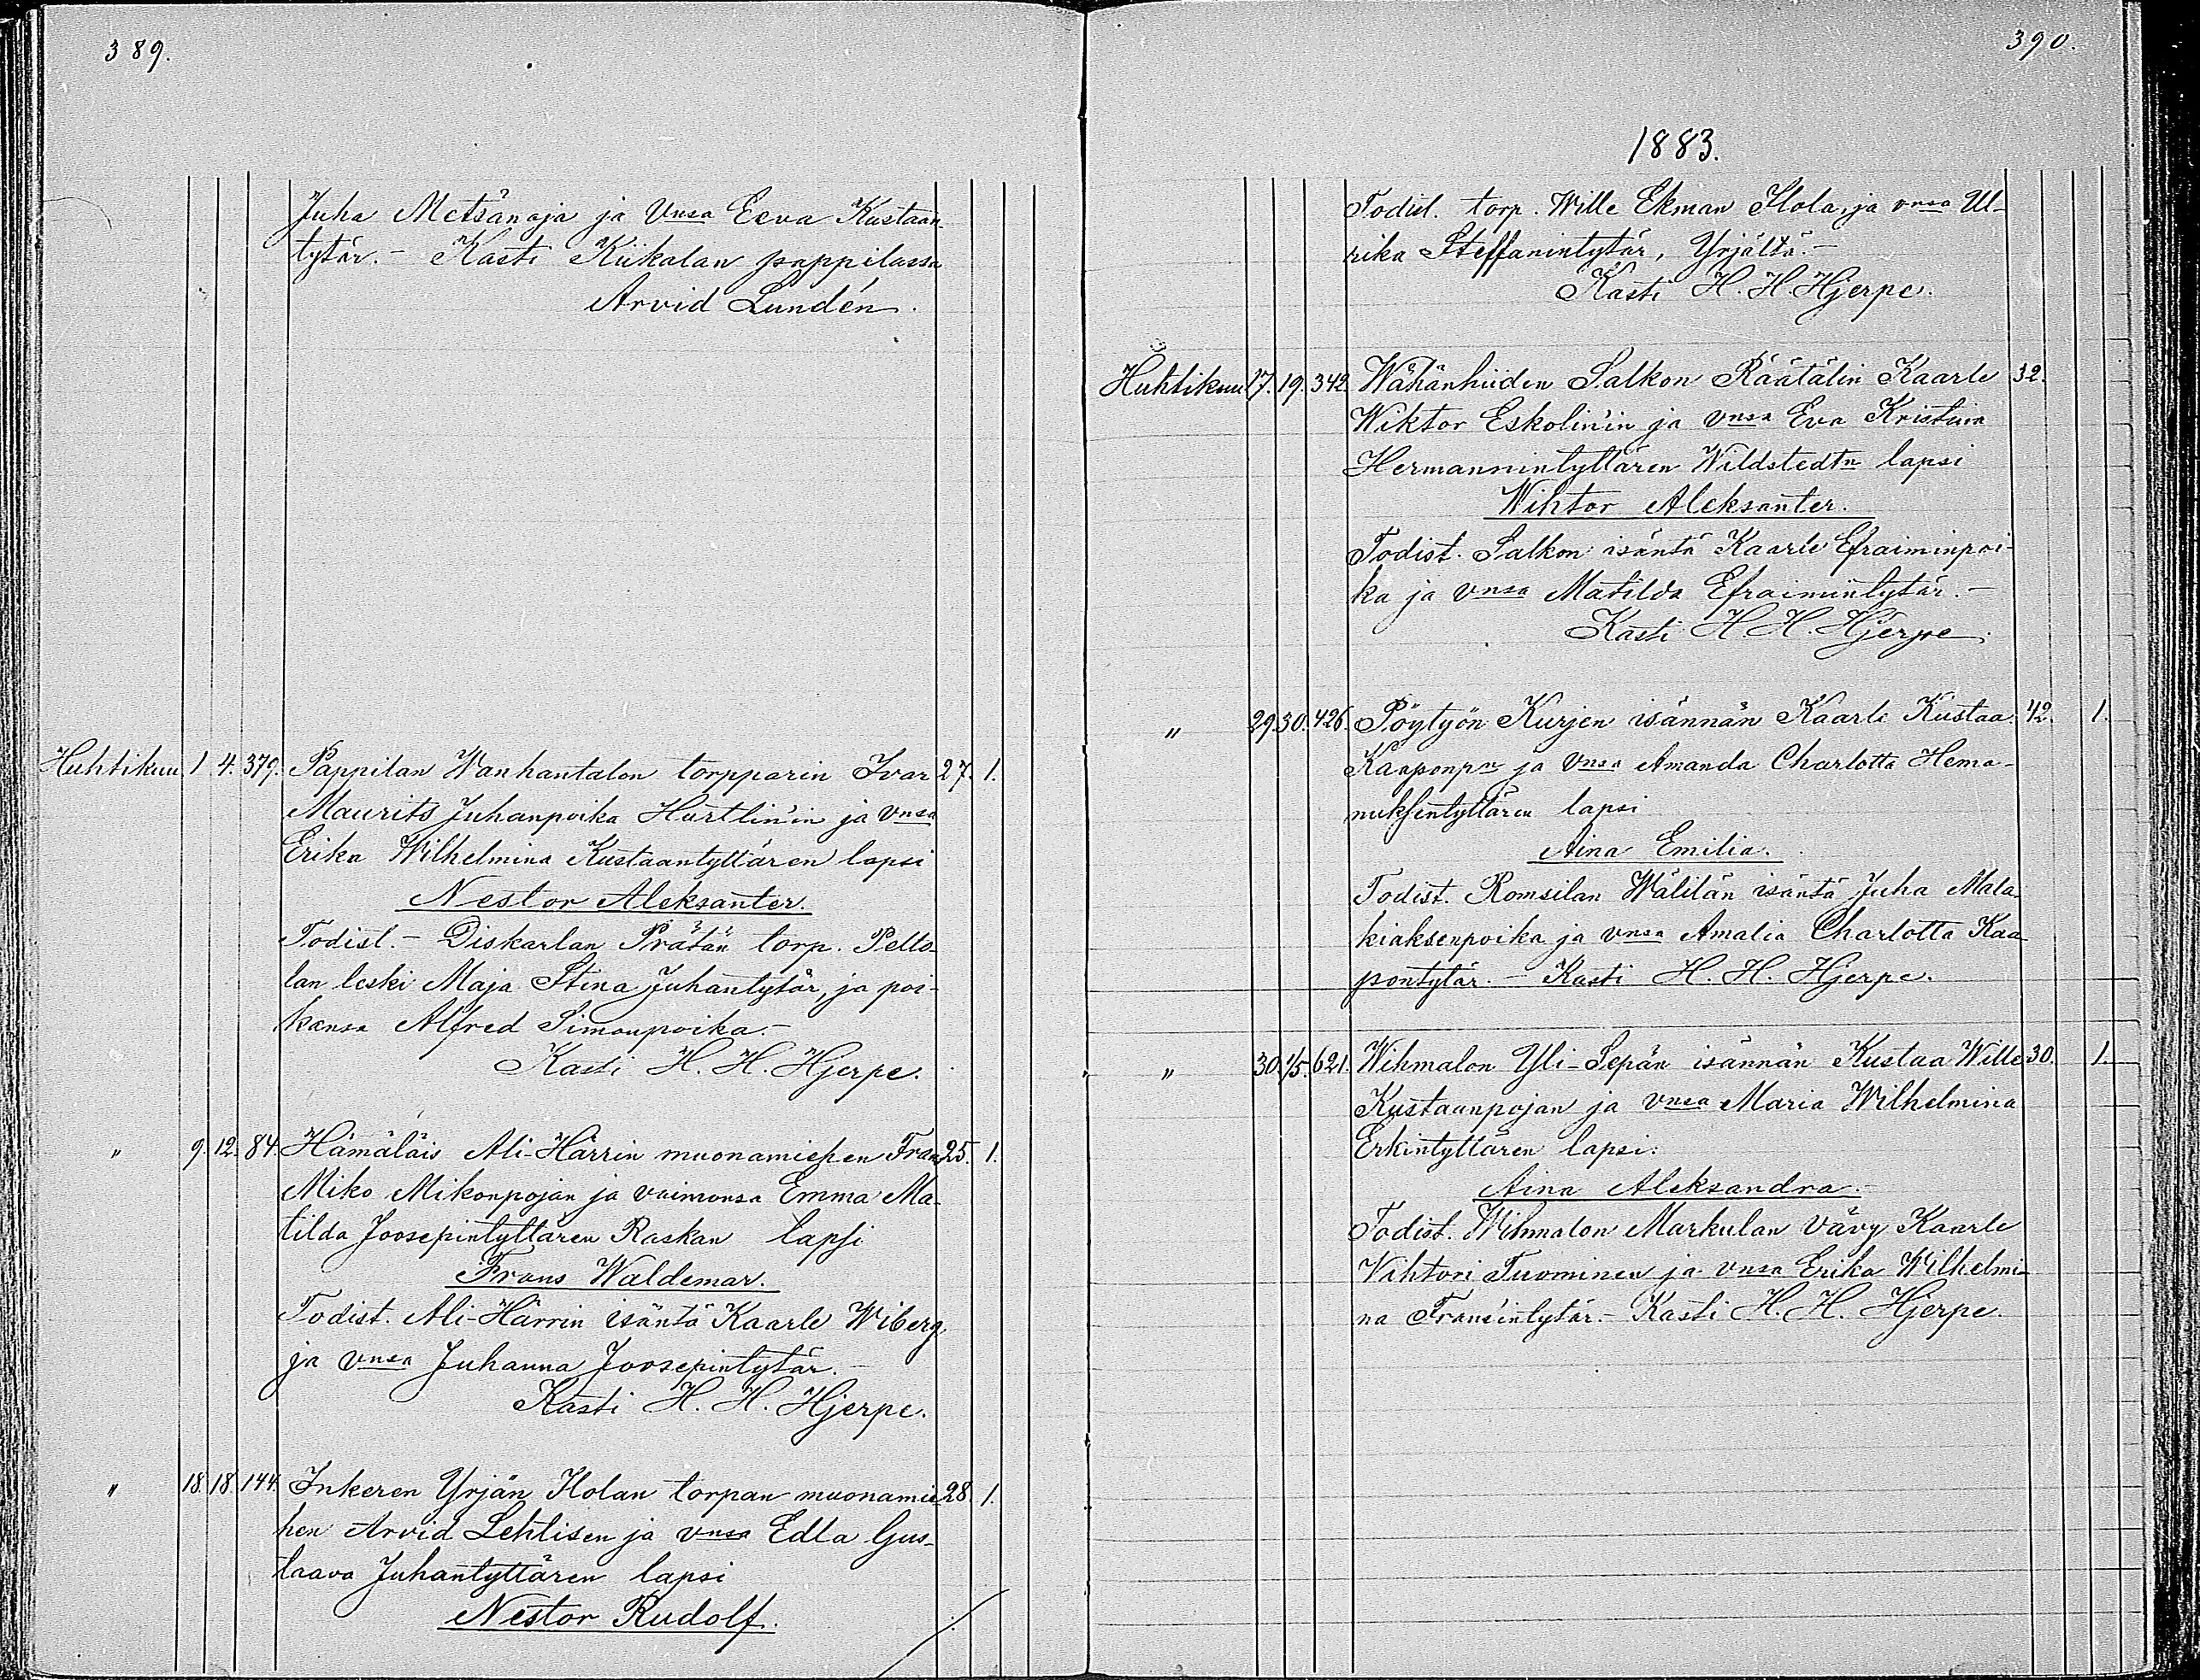 389.
Juha Metsänoja ja vnsa Eeva Kustaan-
tytär. - Kasti Kiikalan pappilassa
Arvid Lundén.
Huhtikuu 1 4. 379. Pappilan Wanhantalon torpparin Ivar 27. 1.
Maurits Juhanpoika Hurtlin'in ja vnsa
Erika Wilhelmina Kustaantyttären lapsi
Nestor Aleksanter.
Todist. - Diskarlan Prätän torp. Pelto-
lan leski Maja Stina Juhantytär, ja poi-
kansa Alfred Simonpoika. -
Kasti H. H. Hjerpe.
" 9. 12. 84. Hämäläis Ali-Härrin muonamiehen Frans 25. 1.
Miko Mikonpojan ja vaimonsa Emma Ma-
tilda Joosepintyttären Raskan lapsi
Frans Waldemar.
Todist. Ali-Härrin isäntä Kaarle Wiberg,
ja vnsa Juhanna Joosepintytär. -
Kasti H. H. Hjerpe.
" 18. 18. 144. Inkeren Yrjän Ilolan torpan muonamie 28. 1.
hen Arvid Lehtisen ja vnsa Edla Gus-
taava Juhantyttären lapsi
Nestor Rudolf.
390.
1883.
Todist. torp. Wille Ekman Ilola, ja vnsa Ul-
rika Steffanintytär, Yrjältä. -
Kasti H. H. Hjerpe.
Huhtikuu 17. 19. 342. Wähänhiiden Salkon Räätälin Kaarle 32.
Wiktor Eskolin'in ja vnsa Eva Kristiina
Hermannintyttären Wildstedtn lapsi
Wihtor Aleksanter.
Todist. Salkon isäntä Kaarle Efraiminpoi-
ka ja vnsa Matilda Efraimintytär. -
Kasti H. H. Hjerpe.
" 29. 30. 426. Pöytyön Kurjen isännän Kaarle Kustaa 42. 1.
Kaaponpn ja vnsa Amanda Charlotta Hema-
nuksentyttären lapsi
Aina Emilia.
Todist. Romsilan Wälilän isäntä Juha Mala-
kiaksenpoika ja vnsa Amalia Charlotta Kaa-
pontytär. - Kasti H. H. Hjerpe.
" 30. 1/5. 621. Wihmalon Yli-Sepän isännän Kustaa Wille 30. 1.
Kustaanpojan ja vnsa Maria Wilhelmina
Erkintyttären lapsi:
Aina Aleksandra. -
Todist. Wihmalon Markulan vävy Kaarle
Vihtori Tuominen ja vnsa Erika Wilhelmi-
na Frans'intytär. - Kasti H. H. Hjerpe.